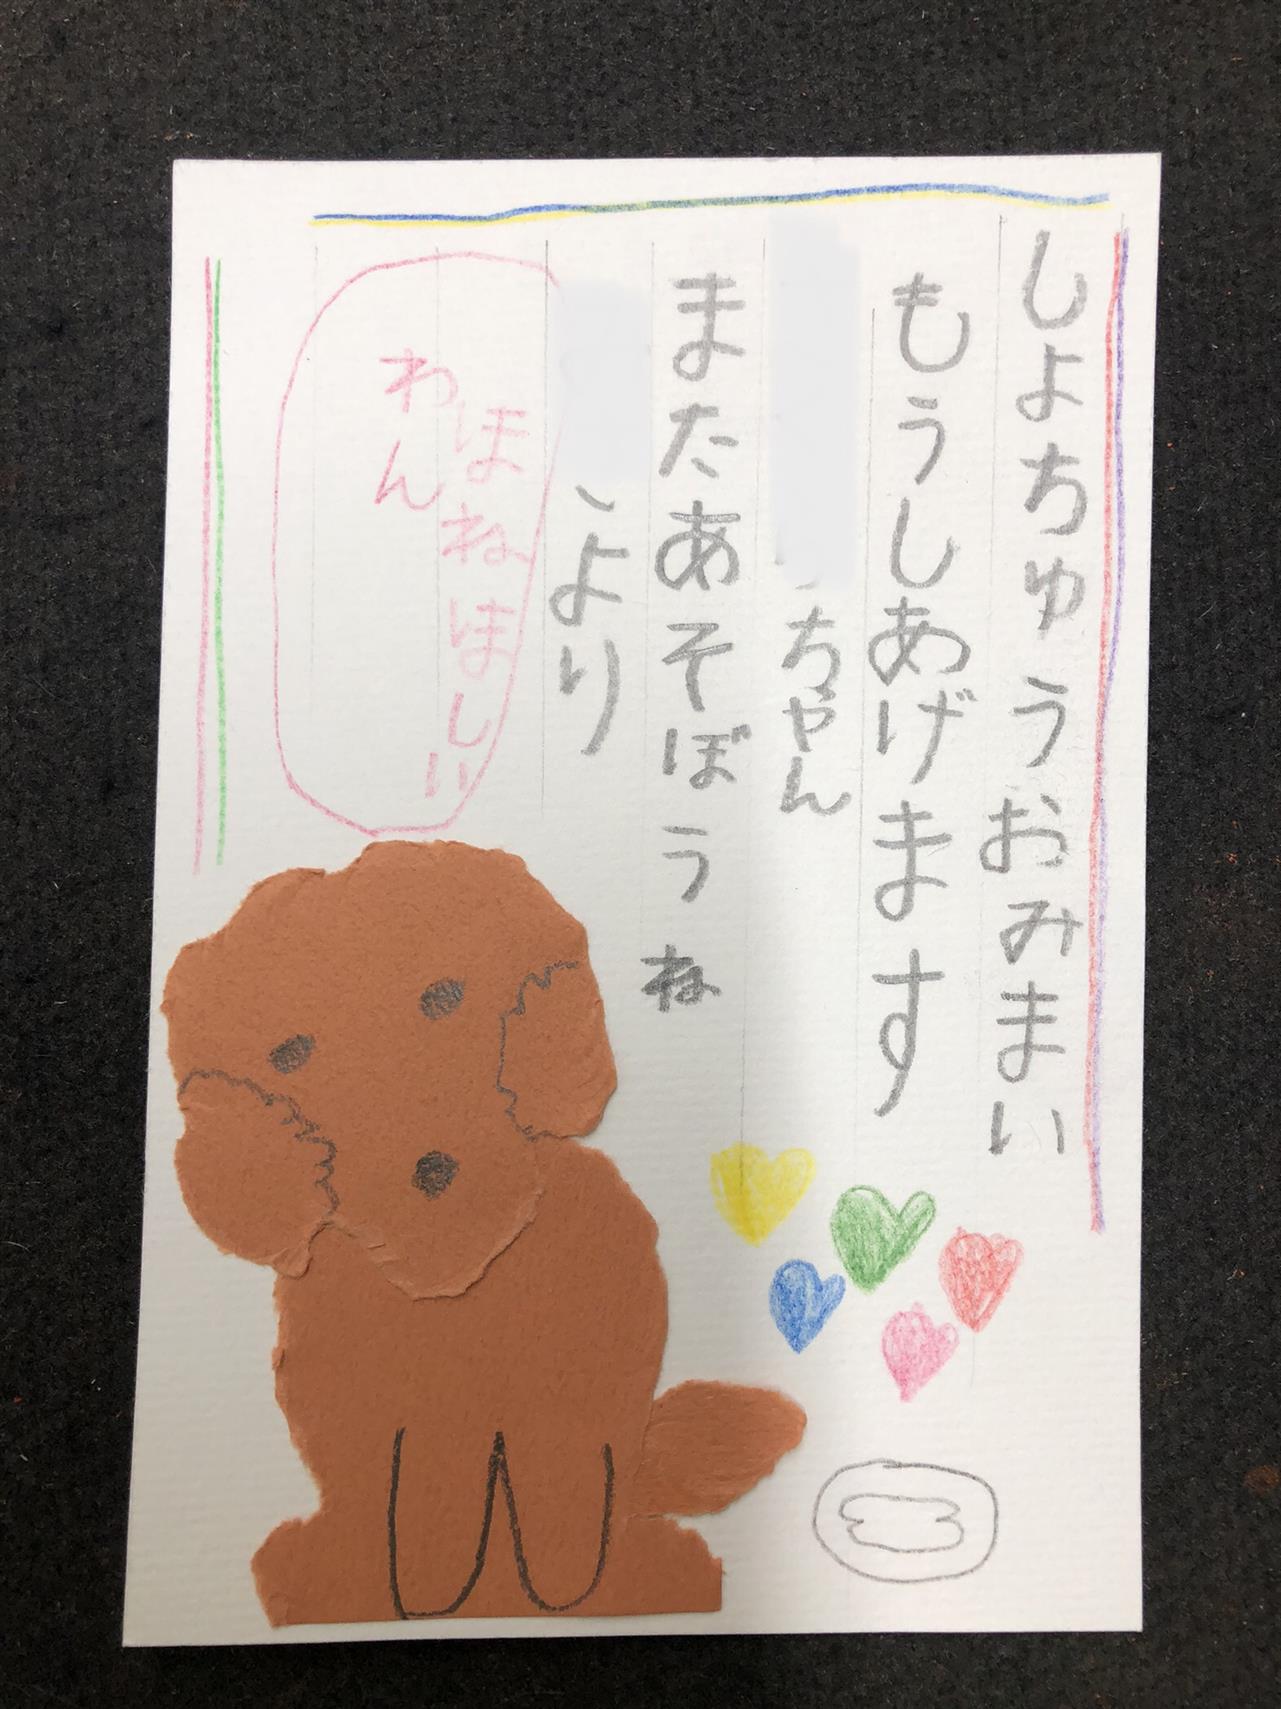 しょちゅうおみまい
もうしあげます
ちゃん
またあそぼうね
より
ほねほしい
わん